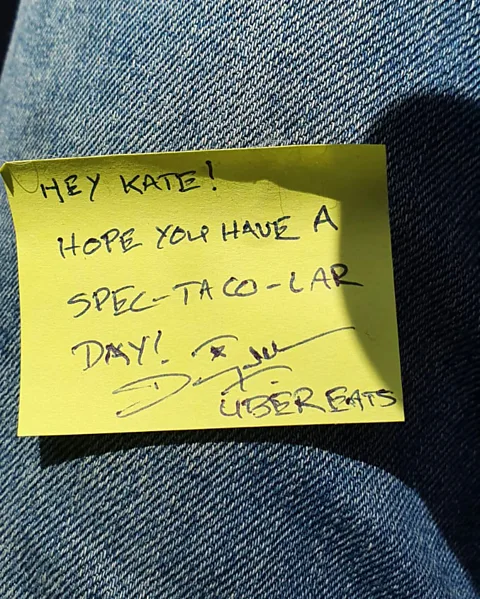 HEY KATE!
HOPE YOU HAVE A
SPEC-TACO-LAR
DAY!
UBER EATS